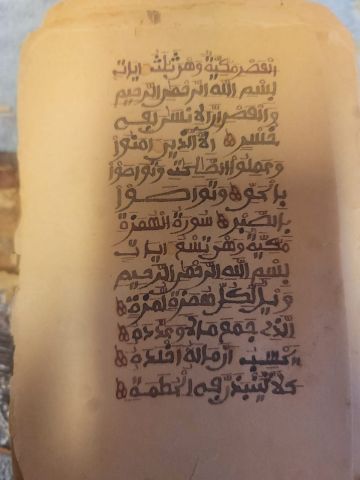 العصر مكية وهي ثلث ايات
بسم الله الرحمن الرحيم
والعصر ان الانسن لفي
خسر الا الذين امنوا
وعملوا الصلحت وتواصوا
بالحق وتواصوا
بالصبر سورة الهمزة
مكية وهي تسع ايات
بسم الله الرحمن الرحيم
ويل لكل همزة لمزة
الذي جمع مالا وعدده
يحسب ان ماله اخلده
كلا لينبذن في الحطمة